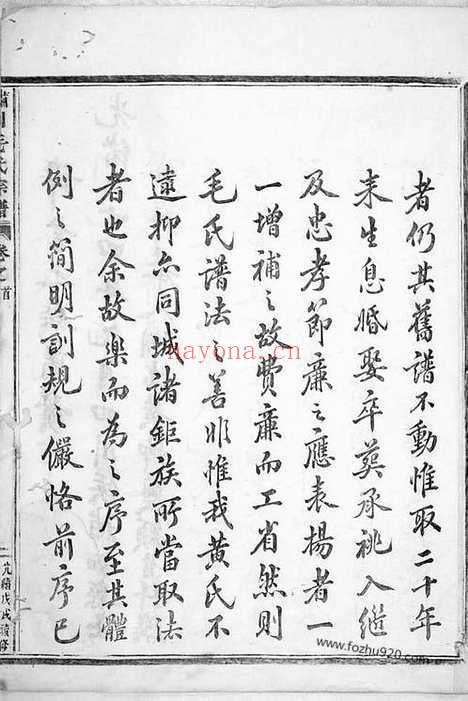 者仍其舊譜不動惟取二十年
来生息婚娶卒葵承祧入繼
及忠孝節廉之應表揚者一
一增補之故費廉而工省然則
毛氏譜法之善非惟我黄氏不
遠抑亦同城諸鉅族所當取法
者也余故樂而為之序至其體
例之簡明訓規之儼恪前序已
毛氏宗譜
卷之首
二
光緒戊戌續修
nayona.cn
www.fozhu920.com